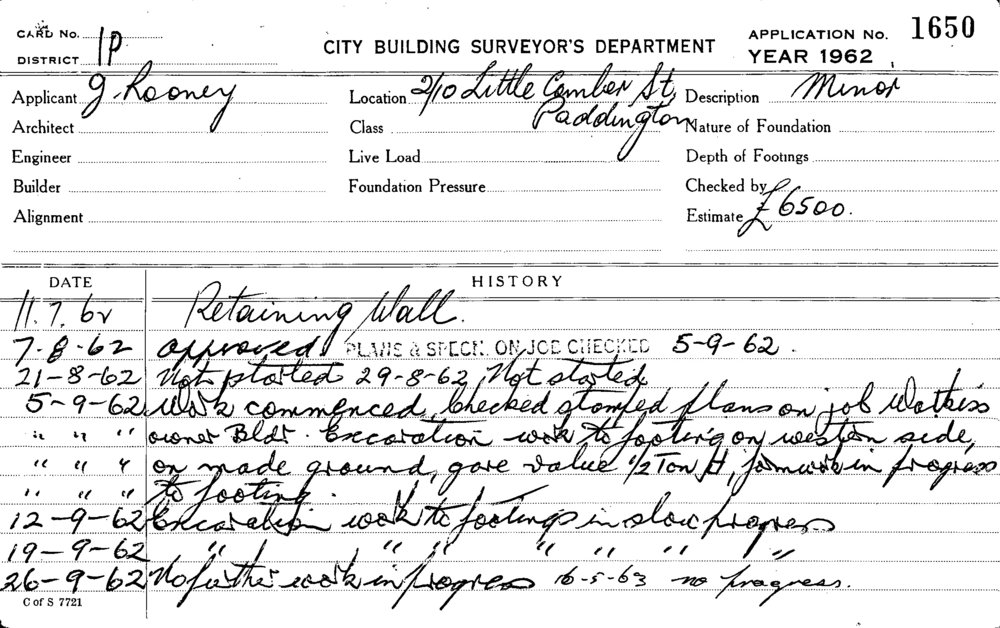 CARD No. 1P
DISTRICT
CITY BUILDING SURVEYOR'S DEPARTMENT
APPLICATION No. 1650
YEAR 1962
Applicant J. Rooney
Location 2/10 Little Comber St, Paddington
Description Minor
Architect
Class
Nature of Foundation
Engineer
Live Load
Depth of Footings
Builder
Foundation Pressure
Checked by
Alignment
Estimate £6500.
DATE HISTORY
11.7.62 Retaining Wall.
7-8-62 approved PLANS & SPECN. ON JOB CHECKED 5-9-62.
21-8-62 Not started 29-8-62, Not started
5-9-62 Work commenced, checked stamped plans on job
" " " owner Bldr. Excavation work to footing on western side,
" " " on made ground, gave value 1/2 Ton, formwork in progress
" " " to footing.
12-9-62 Excavation work to footings in slow progress
19-9-62 " " " " " " "
26-9-62 No further work in progress 16-5-63 no progress.
C of S 7721